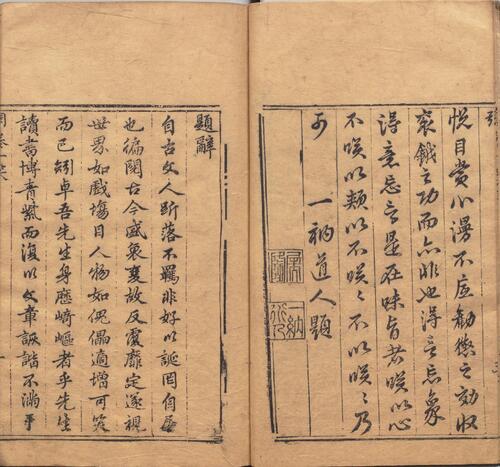 悅目賞心漫不應勸懲之劾收
袞鉞之功而亦非也得言忘象
得意忘言是在味旨者咲以心
不咲以頰以不咲咲不以咲咲乃
可
一衲道人題
一衲
題辭
自古文人跅落不羈非好以誕罔自
也徧閱古今盛衰變故反覆靡定遂視
世界如戲塲目人物如傀儡適增可笑
而已矧卓吾先生身歷崎嶇者乎先生
讀書博青紫而復以文章詼諧不滿于